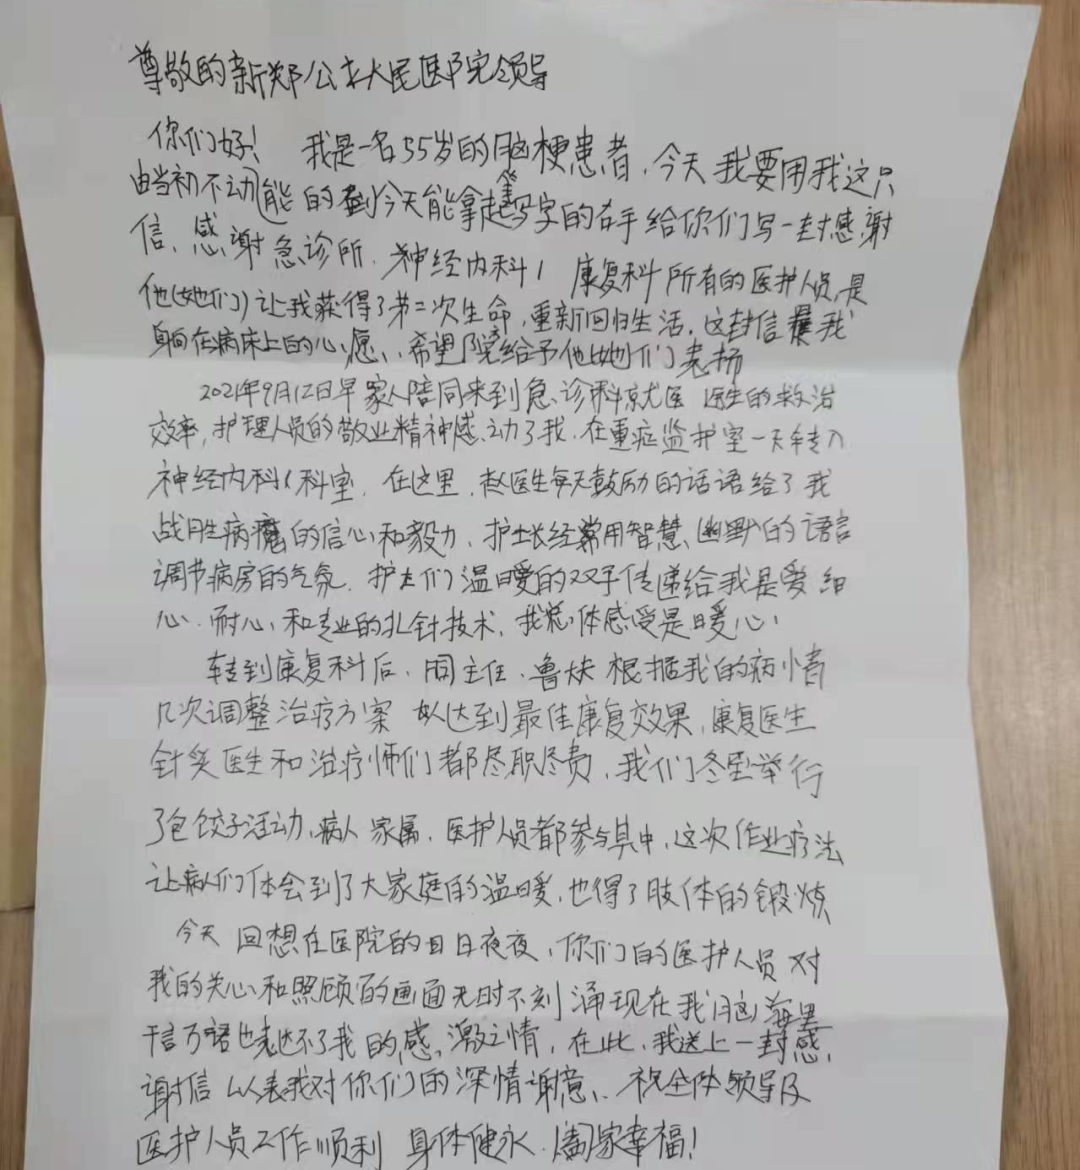 尊敬的新郑公立人民医院领导
你们好! 我是一名55岁的脑梗患者,今天我要用我这只
由当初不动能的到今天能拿起笔写字的右手给你们写一封感谢
信、感谢急诊所.神经内科1 康复科所有的医护人员,是
他(她们)让我获得了第二次生命,重新回归生活,这封信是我
躺在病床上的心愿、希望院给予他她们表扬
2021年9月12日早家人陪同来到急诊科就医 医生的救治
效率,护理人员的敬业精神感动了我.在重症监护室一天转入
神经内科1科室.在这里,赵医生每天鼓励的话语给了我
战胜病魔的信心和毅力.护士长经常用智慧、幽默的语言
调节病房的气氛.护士们温暖的双手传递给我是爱 细
心.耐心和专业的扎针技术,我总体感受是暖心,
转到康复科后.周主任.鲁 根据我的病情
几次调整治疗方案 以达到最佳康复效果,康复医生
针灸医生和治疗师们都尽职尽责,我们冬至举行
了包饺子活动,病人 家属.医护人员都参与其中,这次作业疗法
让病人们体会到了大家庭的温暖,也得了肢体的锻炼
今天 回想在医院的日日夜夜,你们的医护人员对
我的关心和照顾的画面无时不刻涌现在我脑海里
千言万语也表达不了我的感激之情,在此,我送上一封感
谢信 以表我对你们的深情谢意、祝全体领导及
医护人员工作顺利 身体健永.阖家幸福!